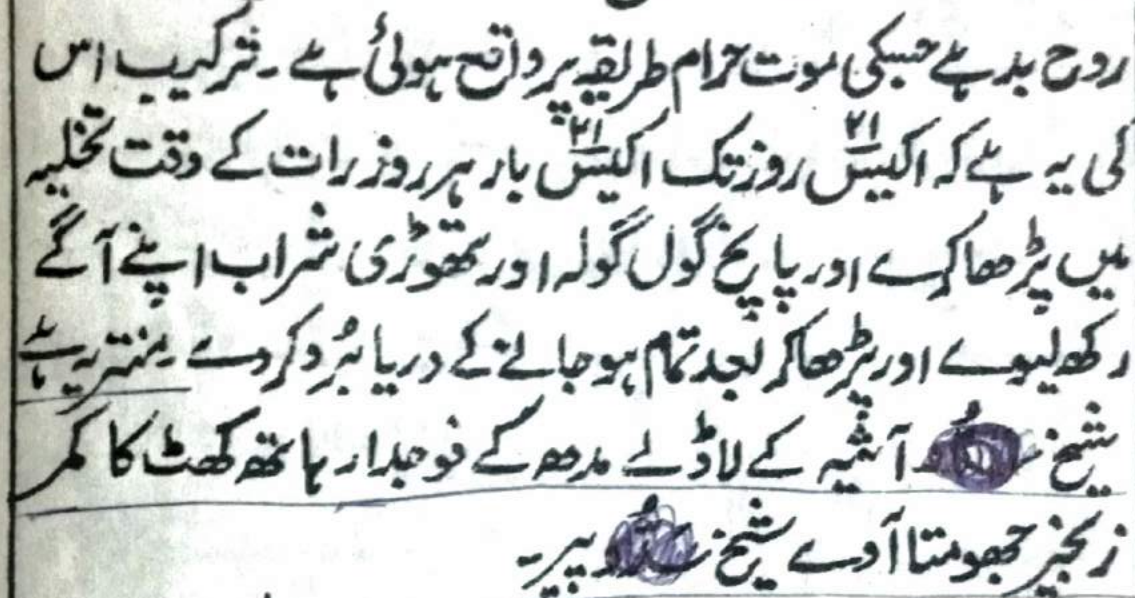 روح بد ہے جسکی موت حرام طریقہ پر واقع ہوئی ہے ۔ ترکیب اس
کی یہ ہے کہ اکیس ۲۱ روز تک اکیس ۲۱ بار ہر روز رات کے وقت تخلیہ
میں پڑھا کرے اور پانچ گول گولہ اور تھوڑی شراب اپنے آگے
رکھ لیوے اور پڑھا کر بعد تمام ہو جانے کے دریا بُرد کر دے ۔ منتر یہ ہے
شیخ آشیہ کے لاڈلے مدھ کے فوجدار ہاتھ کھٹ کا کمر
زنجیر جھومتا آوے شیخ پیر ۔